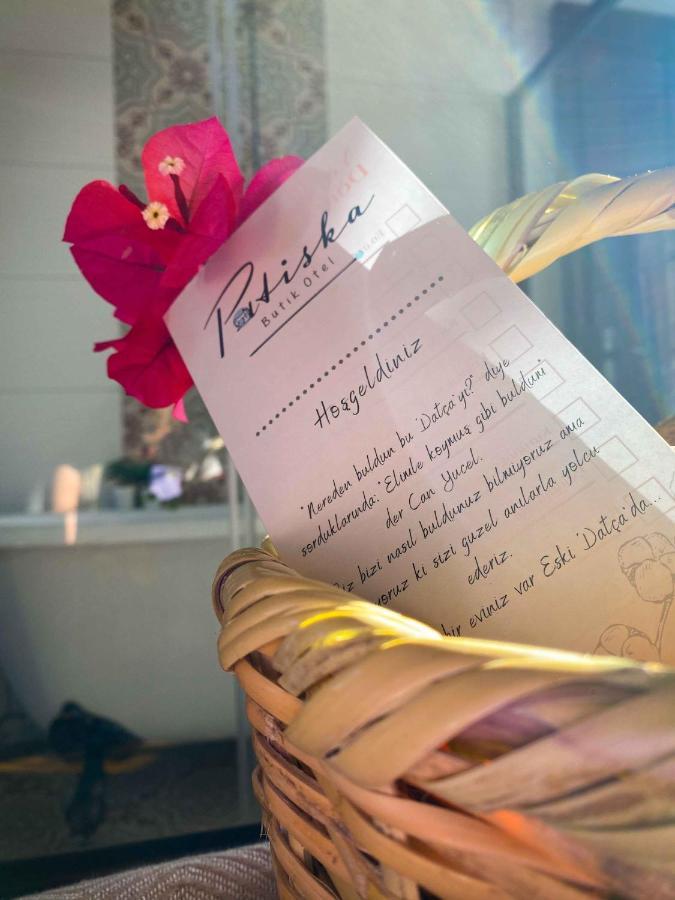 Patiska
Butik Otel
Hoşgeldiniz
"Nereden buldun bu 'Datça'yı?" diye
sorduklarında: "Elimle koymuş gibi buldum"
der Can Yucel.
iz bizi nasıl buldunuz bilmiyoruz ama
yoruz ki sizi guzel anılarla yolcu
ederiz.
bir eviniz var Eski 'Datça'da...